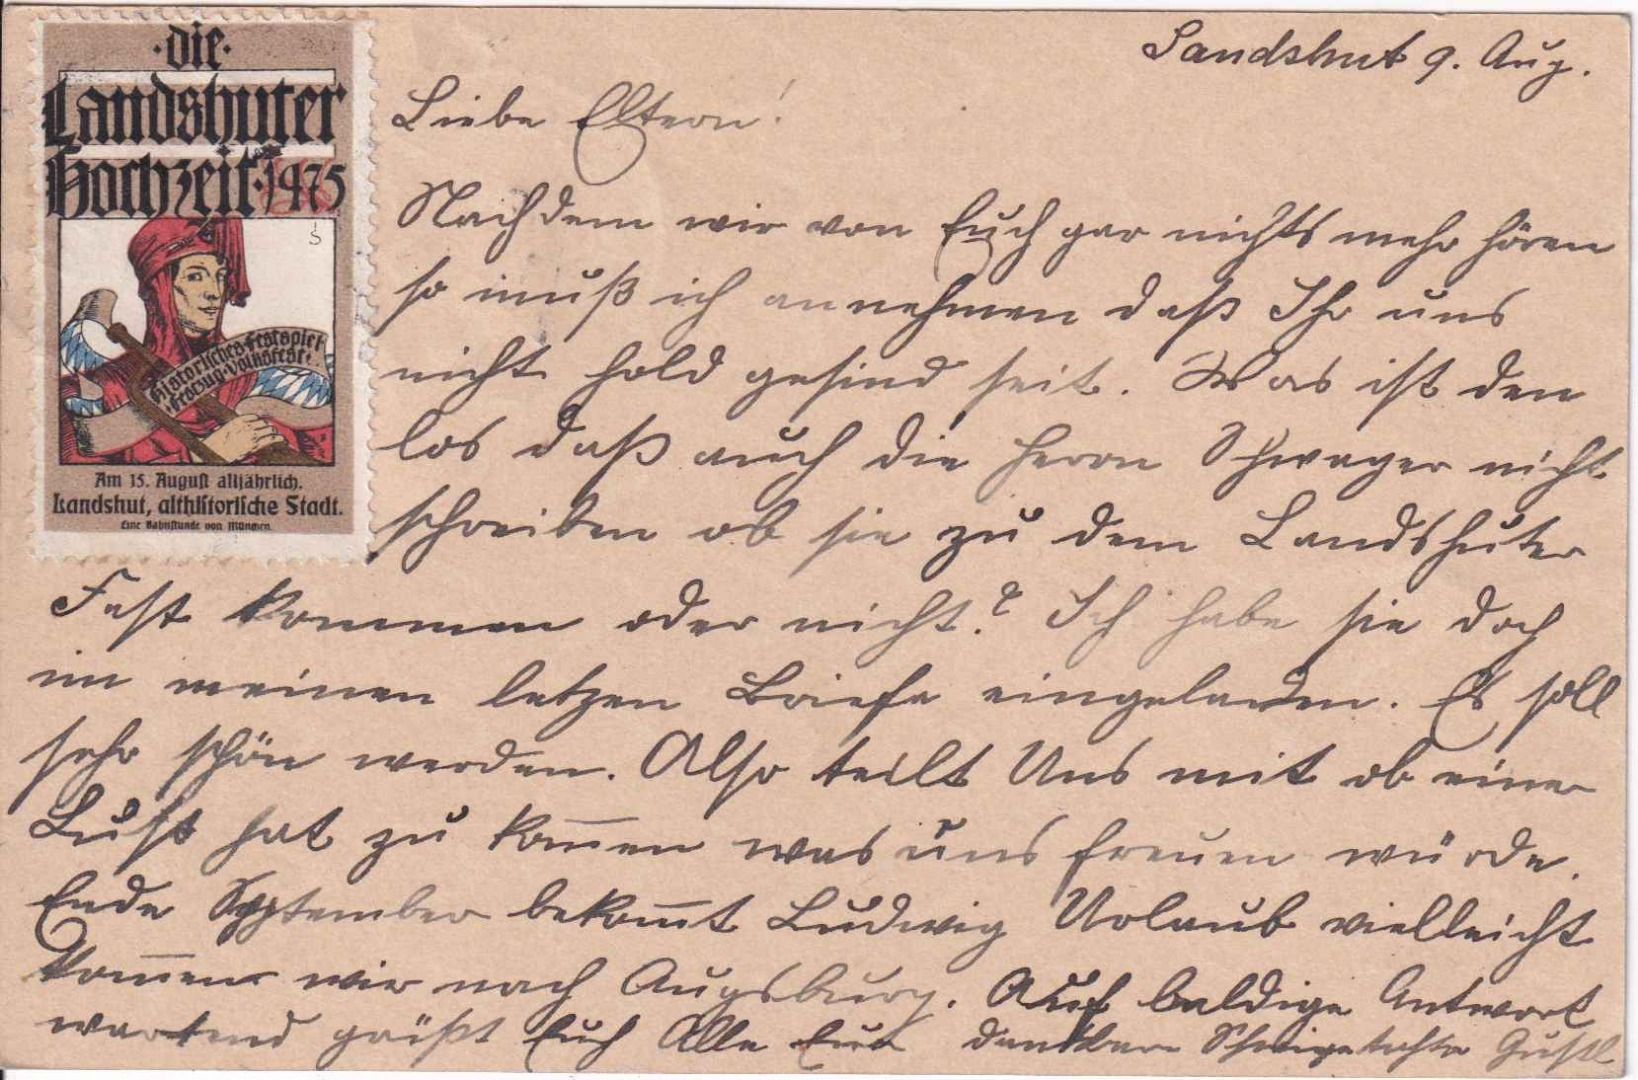 ·die·
Landshuter
Hochzeit·1475
Historisches Festspiel
Festzug·Volksfest·
Am 15. August alljährlich.
Landshut, althistorische Stadt.
Eine Bahnstunde von München.
Landshut 9. Aug.
Liebe Eltern!
Nachdem wir von Euch gar nichts mehr hören
so muß ich annehmen daß Ihr uns
nicht hold gesind seit. Was ist den
los daß auch die Herrn Schwager nicht
schreiben ob sie zu dem Landshuter
Fest kommen oder nicht? Ich habe sie doch
im meinen letzen Briefe eingeladen. Es soll
sehr schön werden. Also teilt Uns mit ob einer
Lust hat zu kom̄en was uns freuen würde.
Ende September bekom̄t Ludwig Urlaub vielleicht
kom̄en wir nach Augsburg. Auf baldige Antwort
wartend grüßt Euch Alle Eure dankbare Schwigetochter Gustl